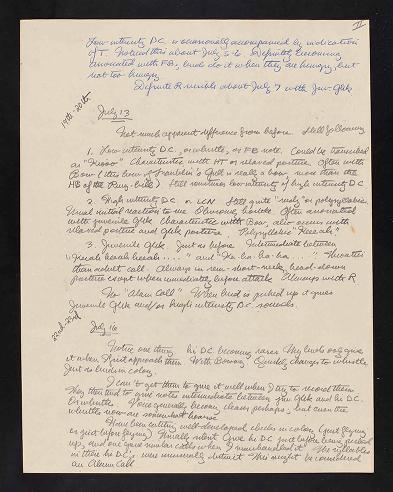 II
Low intensity D.C. is occasionally accompanied by indication
of T. Noticed this about July 5-6. Definitely becoming
associated with F.B., birds do it when they are hungry, but
not too hungry
Definite R rumble about July 7 with Juv. Gk
19th-20th
July 13
Not much apparent difference from before. Still following
1. Low intensity D.C., or whistle, or F.B. note. Could be transcribed
as "Kiooo" Characteristic with HT or relaxed posture. Often with
Bow (this bow of Franklin's Gull is really a bow, more than the
HB of the Ring-bill) Still
2. High intensity D.C. or LCN Still quite "reedy" or polysyllabic.
Usual initial reaction to me. Obvious hostile. Often associated
with juvenile Gk. Characteristic with Bow, also occurs with
relaxed posture and Gk posture. Polysyllabic "Keeeah"
3. Juvenile Gk. Just as before Intermediate between
"Keeah keeah keeah ...." and "Ka-ha-ha-ha ...."
than adult call. Always in
posture except when immediately before attack. Always with R
No "Alarm Call" When bird is picked up it gives
Juvenile Gk and/or high intensity D.C. sounds.
22nd-23rd
July 16
Notice one thing hi DC becoming rarer My birds only give
it when I first approach them With Bowing. Quickly changes to whistle
Just as birds in colony.
I can't get them to give it well when I try to record them
They then tend to give notes intermediate between juv Gk and hi DC.
Or whistle. Voice generally becoming clearer perhaps, but even the
whistle now are somewhat hoarse
Have been getting well-developed chicks in colony (just flying
or just before flying) Usually silent Give hi DC just before being picked
up, and one gave similar calls when I manhandled it.
in their hi DC's, was unusually This might be considered
an Alarm Call